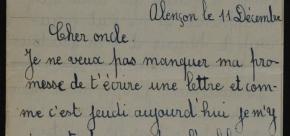 Alençon le 11 Décembre
Cher oncle.
Je ne veux pas manquer ma pro-
messe de t'écrire une lettre et com-
me c'est jeudi aujourd'hui je m'y